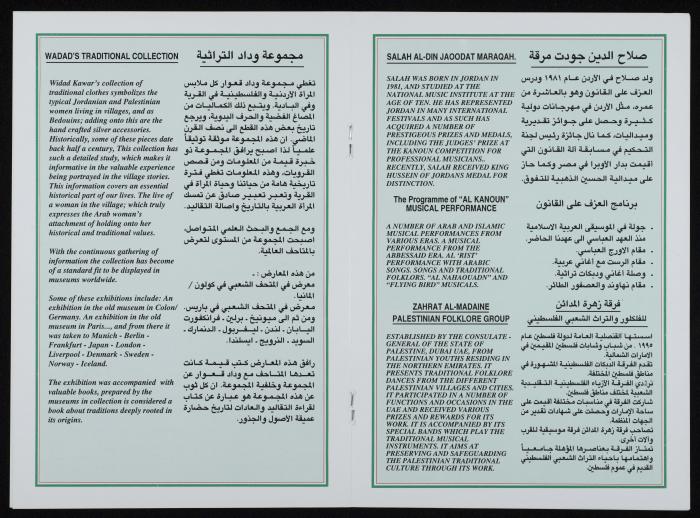 WADAD'S TRADITIONAL COLLECTION
Widad Kawar's collection of
traditional clothes symbolizes the
typical Jordanian and Palestinian
women living in villages, and as
Bedouins; adding onto this are the
hand crafted silver accessories.
Historically, some of these pieces date
back half a century, This collection has
such a detailed study, which makes it
informative in the valuable experience
being portrayed in the village stories.
This information covers an essential
historical part of our lives. The live of
a woman in the village; which truly
expresses the Arab woman's
attachment of holding onto her
historical and traditional values.
With the continuous gathering of
information the collection has become
of a standard fit to be displayed in
museums worldwide.
Some of these exhibitions include: An
exhibition in the old museum in Colon/
Germany. An exhibition in the old
museum in Paris..., and from there it
was taken to Munich - Berlin -
Frankfurt - Japan - London -
Liverpool - Denmark - Sweden -
Norway - Iceland.
The exhibition was accompanied with
valuable books, prepared by the
museums in collection is considered a
book about traditions deeply rooted in
its origins.
مجموعة وداد التراثية
تغطي مجموعة وداد قعوار كل ملابس
المرأة الأردنية والفلسطينية في القرية
وفي البادية. ويتبع ذلك الكماليات من
المصاغ الفضية والحرف اليدوية. ويرجع
تاريخ بعض هذه القطع الى نصف القرن
الماضي. ان هذه المجموعة موثقة توثيقاً
علمياً لذا اصبح يرافق المجموعة ذو
خبرة قيمة من المعلومات ومن قصص
القرويات، وهذه المعلومات تغطي فترة
تاريخية هامة من حياتنا وحياة المرأة في
القرية وتعبر تعبير صادق عن تمسك
المرأة العربية بالتاريخ واصالة التقاليد.
ومع الجمع والبحث العلمي المتواصل،
اصبحت المجموعة من المستوى لتعرض
بالمتاحف العالمية.
من هذه المعارض : .
معرض في المتحف الشعبي في كولون /
المانيا.
معرض في المتحف الشعبي في باريس.
ومن ثم الى ميونيخ ـ برلين ـ فرانكفورت
اليابان ـ لندن ـ ليفربول ـ الدنمارك ـ
السويد ـ النرويج ـ ايسلندا.
رافق هذه المعارض كتب قيمة كانت
تعدها المتاحف مع وداد قعوار عن
المجموعة وخلفية المجموعة. ان كل ثوب
عن هذه المجموعة هو عبارة عن كتاب
لقراءة التقاليد والعادات لتاريخ حضارة
عميقة الأصول والجذور.
SALAH AL-DIN JAOODAT MARAQAH.
SALAH WAS BORN IN JORDAN IN
1981, AND STUDIED AT THE
NATIONAL MUSIC INSTITUTE AT THE
AGE OF TEN. HE HAS REPRESENTED
JORDAN IN MANY INTERNATIONAL
FESTIVALS AND AS SUCH HAS
ACQUIRED A NUMBER OF
PRESTIGIOUS PRIZES AND MEDALS,
INCLUDING THE JUDGES' PRIZE AT
THE KANOUN COMPETITION FOR
PROFESSIONAL MUSICIANS.
RECENTLY, SALAH RECEIVED KING
HUSSEIN OF JORDANS MEDAL FOR
DISTINCTION.
The Programme of "AL KANOUN"
MUSICAL PERFORMANCE
A NUMBER OF ARAB AND ISLAMIC
MUSICAL PERFORMANCES FROM
VARIOUS ERAS. A MUSICAL
PERFORMANCE FROM THE
ABBESSAID ERA. AL 'RIST'
PERFORMANCE WITH ARABIC
SONGS. SONGS AND TRADITIONAL
FOLKLORS. "AL NAHAOUADN" AND
"FLYING BIRD" MUSICALS.
ZAHRAT AL-MADAINE
PALESTINIAN FOLKLORE GROUP
ESTABLISHED BY THE CONSULATE -
GENERAL OF THE STATE OF
PALESTINE, DUBAI UAE, FROM
PALESTINIAN YOUTHS RESIDING IN
THE NORTHERN EMIRATES. IT
PRESENTS TRADITIONAL FOLKLORE
DANCES FROM THE DIFFERENT
PALESTINIAN VILLAGES AND CITIES.
IT PARTICIPATED IN A NUMBER OF
FUNCTIONS AND OCCASIONS IN THE
UAE AND RECEIVED VARIOUS
PRIZES AND REWARDS FOR ITS
WORK. IT IS ACCOMPANIED BY ITS
SPECIAL BANDS WHICH PLAY THE
TRADITIONAL MUSICAL
INSTRUMENTS. IT AIMS AT
PRESERVING AND SAFEGUARDING
THE PALESTINIAN TRADITIONAL
CULTURE THROUGH ITS WORK.
صلاح الدين جودت مرقة
ولد صلاح في الأردن عام ١٩٨١ ودرس
العزف على القانون وهو بالعاشرة من
عمره، مثل الأردن في مهرجانات دولية
كثيرة وحصل على جوائز تقديرية
وميداليات، كما نال جائزة رئيس لجنة
التحكيم في مسابقة آلة القانون التي
اقيمت بدار الأوبرا في مصر وكما حاز
على ميدالية الحسين الذهبية للتفوق.
برنامج العزف على القانون
• جولة في الموسيقى العربية الاسلامية
منذ العهد العباسي الى عهدنا الحاضر.
• مقام الاورج العباسي.
• مقام الرست مع اغاني عربية.
• وصلة اغاني ودبكات تراثية.
• مقام نهاوند والعصفور الطائر.
فرقة زهرة المدائن
للفلكلور والتراث الشعبي الفلسطيني
اسستها القنصلية العامة لدولة فلسطين عام
١٩٩٥ ، من شباب وشابات فلسطين المقيمين في
الامارات الشمالية.
تقدم الفرقة الدبكات الفلسطينية المشهورة في
مناطق فلسطين المختلفة.
ترتدي الفرقة الأزياء الفلسطينية التقليدية
الشعبية لمختلف مناطق فلسطين.
شاركت الفرقة في مناسبات مختلفة اقيمت على
ساحة الإمارات وحصلت على شهادات تقدير من
الجهات المنظمة.
تصاحب فرقة زهرة المدائن فرقة موسيقية للقرب
وآلات أخرى.
تمتاز الفرقة بعناصرها المؤهلة جامعياً
واهتمامها باحياء التراث الشعبي الفلسطيني
القديم في عموم فلسطين.